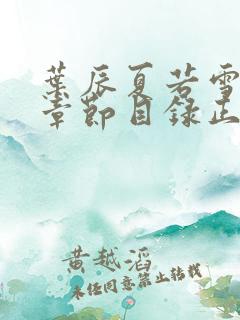 葉辰夏若雪
章節目錄正
黄越滔
未经同意禁止转载